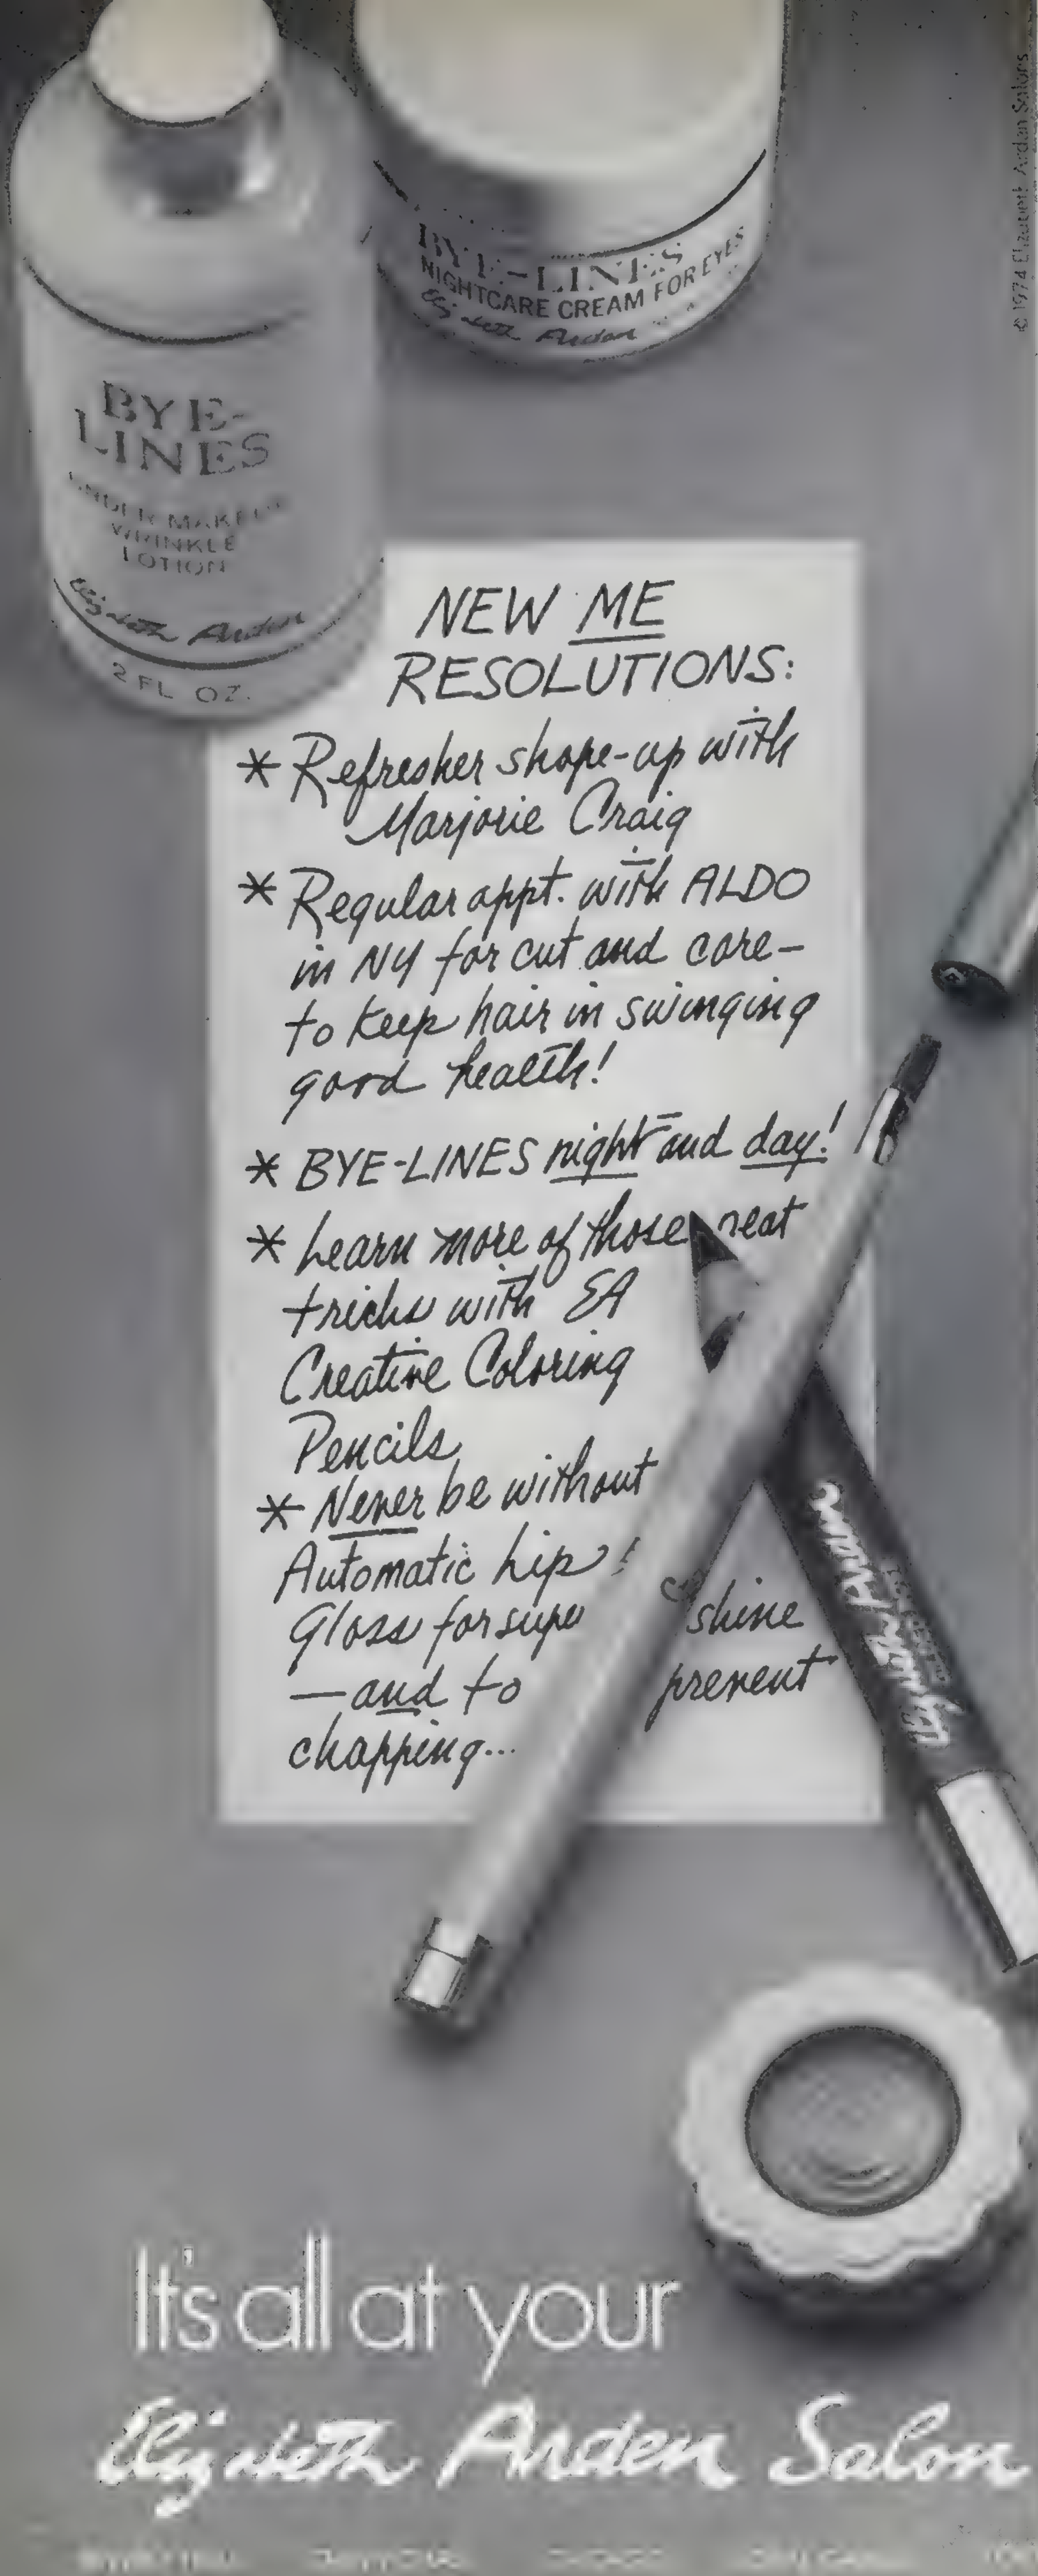 © 1974 Elizabeth Arden Salons
BYE-LINES
NIGHTCARE CREAM FOR EYES
Elizabeth Arden
BYE-
LINES
UNDER MAKEUP
WRINKLE
LOTION
Elizabeth Arden
2 FL OZ.
NEW ME
RESOLUTIONS:
* Refresher shape-up with
Marjorie Craig
* Regular appt. with ALDO
in NY for cut and care—
to keep hair in swinging
good health!
* BYE-LINES night and day!
* Learn more of those neat
tricks with EA
Creative Coloring
Pencils
* Never be without
Automatic Lip
Gloss for supe shine
—and to prevent
chapping...
Elizabeth Arden
It's all at your
Elizabeth Arden Salon